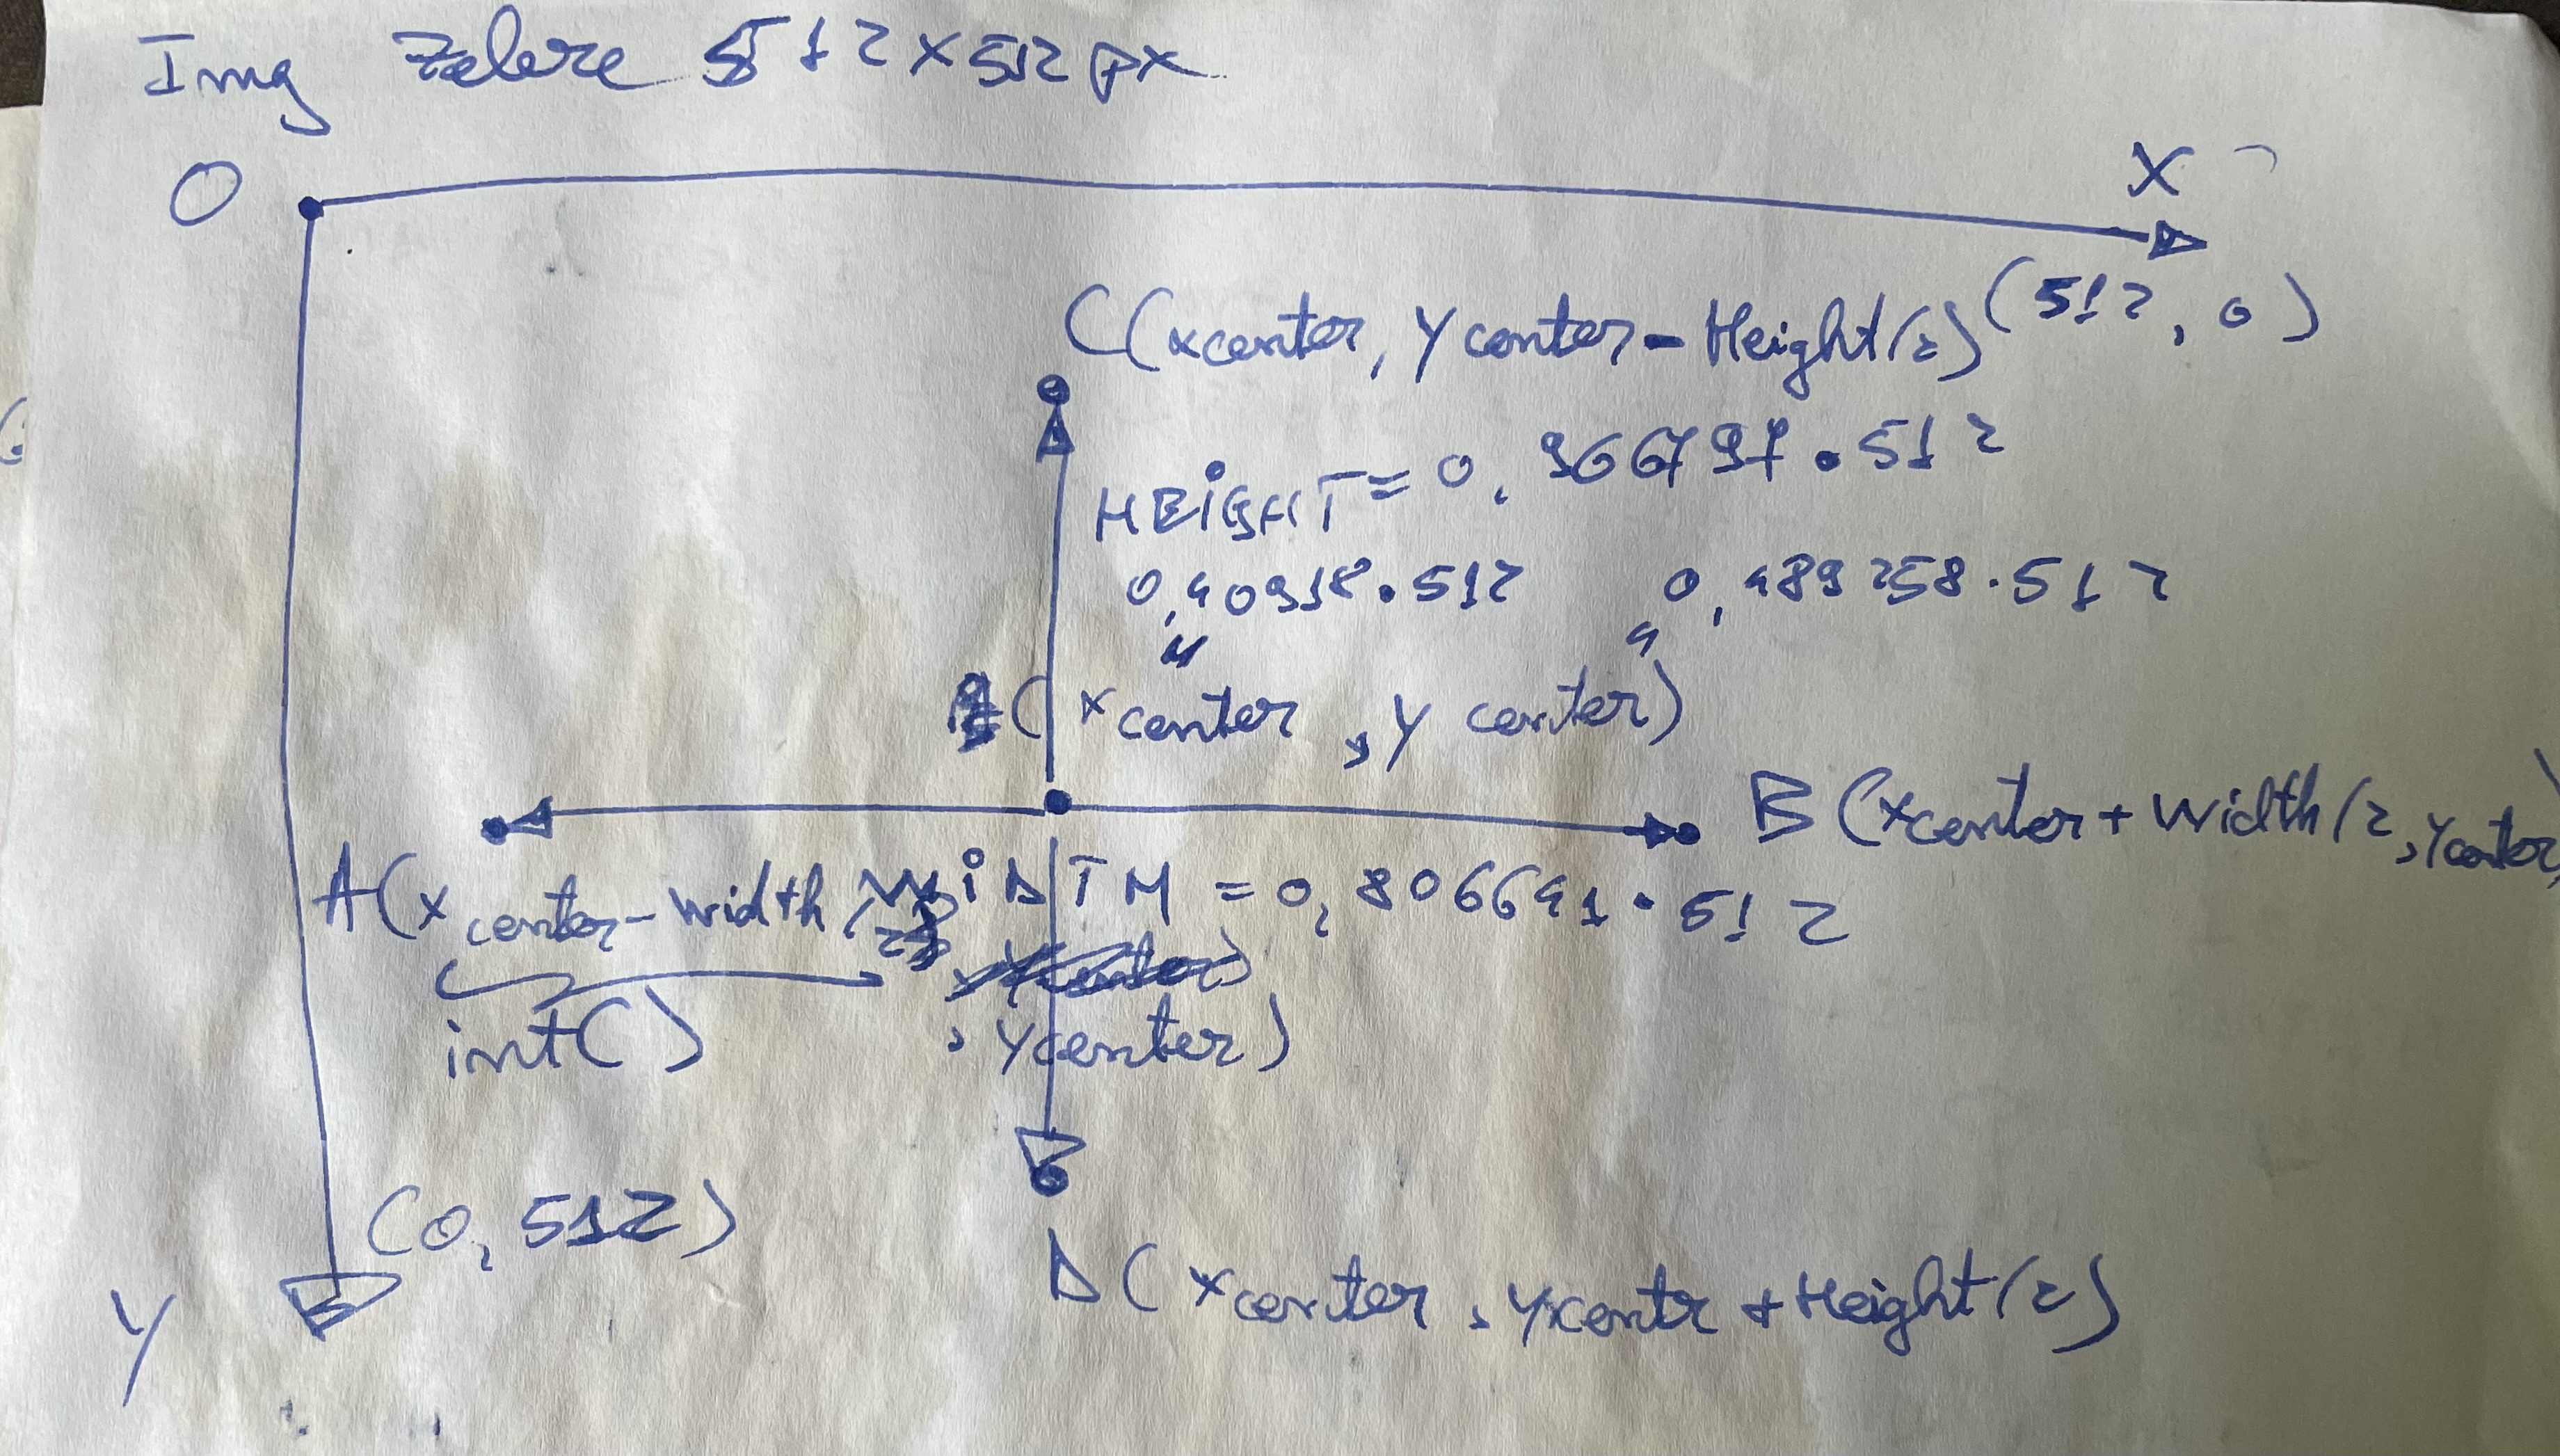 Img 512x512 px
O
X
(512, 0)
C(xcenter, Ycenter-Height/2)
HEiGHT = 0,966797.512
0,40918.512 0,489258.512
" "
(xcenter, Y center)
B(xcenter+width/2, Ycenter)
A(xcenter-width/2
WiDTH = 0,806641.512
int()
, Ycenter)
(0, 512)
Y
D(xcenter, yxcentr+Height/2)